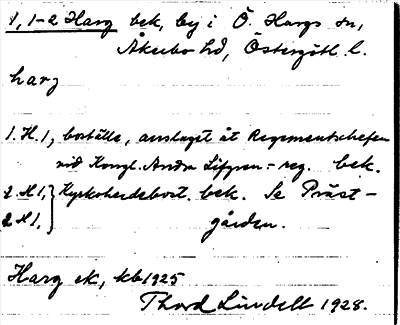 1, 1-2 Harg bek, by i Ö. Hargs sn,
Åkerbo hd, Östergötl. l.
harj
1. H. 1, boställe, anslaget åt Regementschefen
vid Kongl. Andra Lifgren-reg. bek.
2. H 1, } Kyrkoherdebost. bek. Se Präst-
2 H 1, } gården.
Harg ek, kb 1925
Thord Lindell 1928.